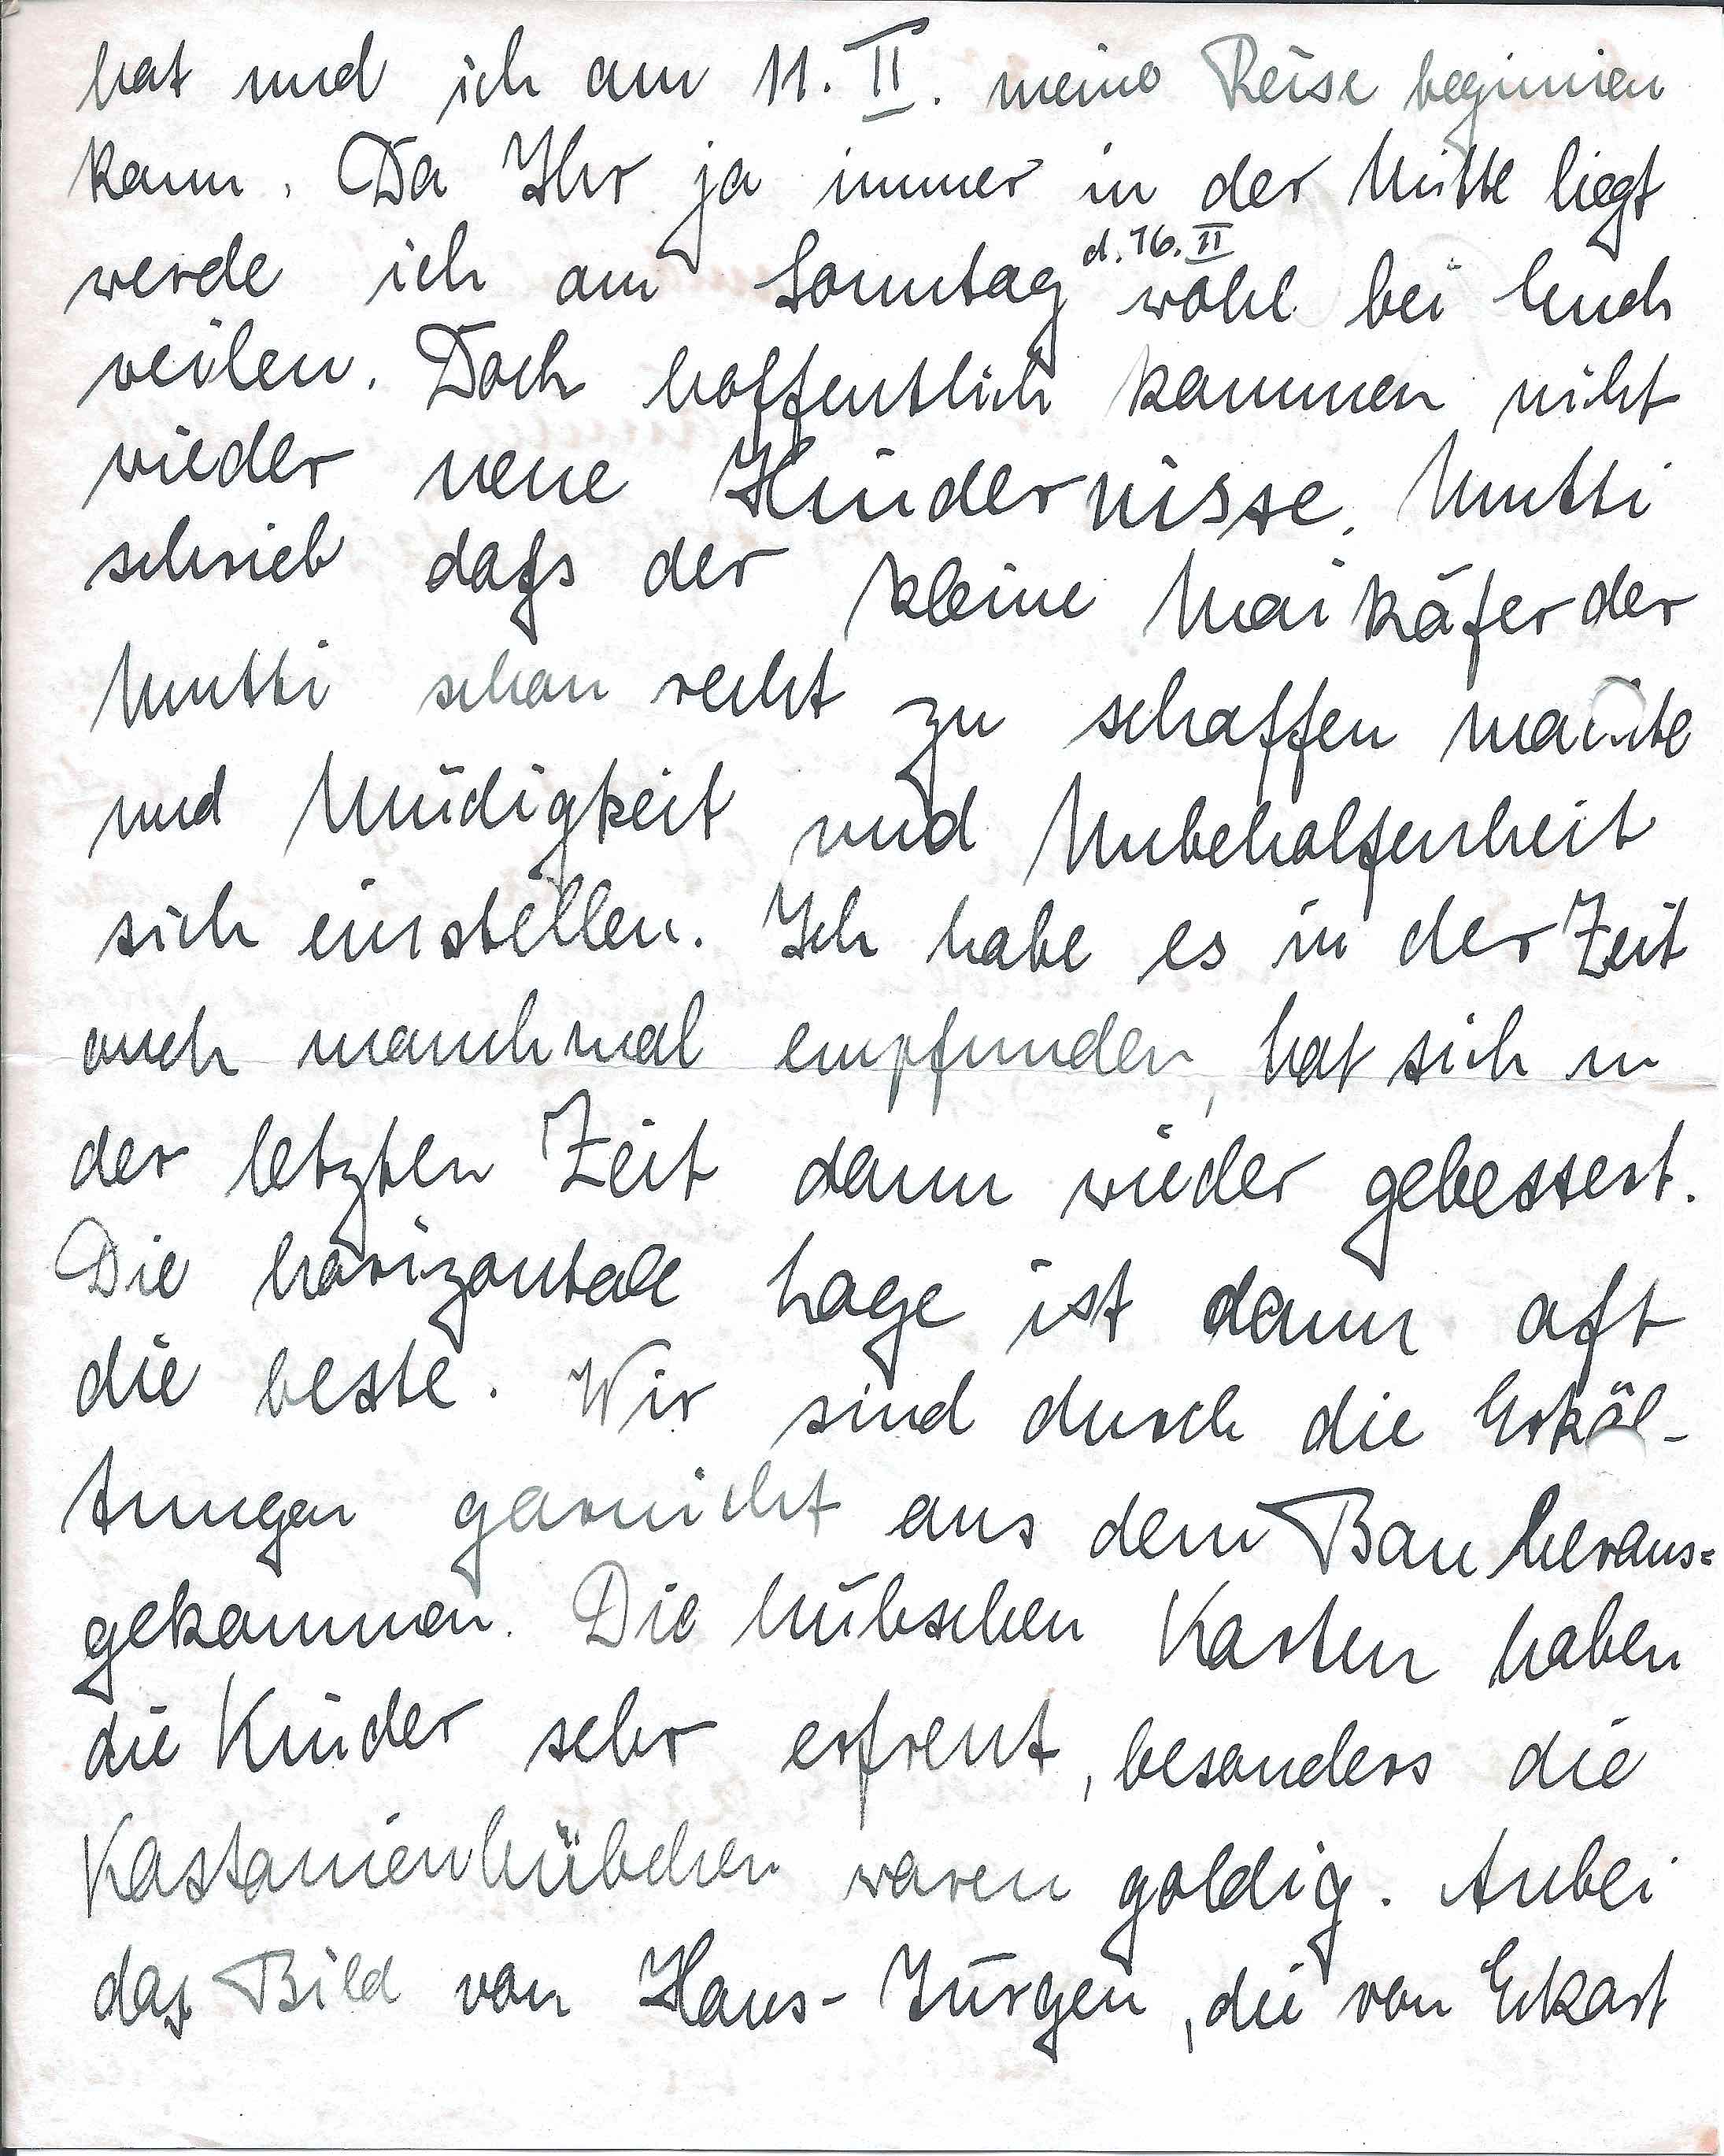 hat und ich am 11. II. meine Reise beginnen
kann. Da Ihr ja immer in der Mitte liegt
werde ich am Sonntag d. 16. II wohl bei Euch
weilen. Doch hoffentlich kommen nicht
wieder neue Hindernisse. Mutti
schrieb daß der kleine Maikäfer der
Mutti schon recht zu schaffen machte
und Müdigkeit und Unbeholfenheit
sich einstellen. Ich habe es in der Zeit
auch manchmal empfunden, hat sich in
der letzten Zeit dann wieder gebessert.
Die horizontale Lage ist dann oft
die beste. Wir sind durch die Erkäl-
tungen garnicht aus dem Bau heraus=
gekommen. Die hübschen Karten haben
die Kinder sehr erfreut, besonders die
Kastanienbübchen waren goldig. Anbei
das Bild von Hans-Jürgen, die von Eckart